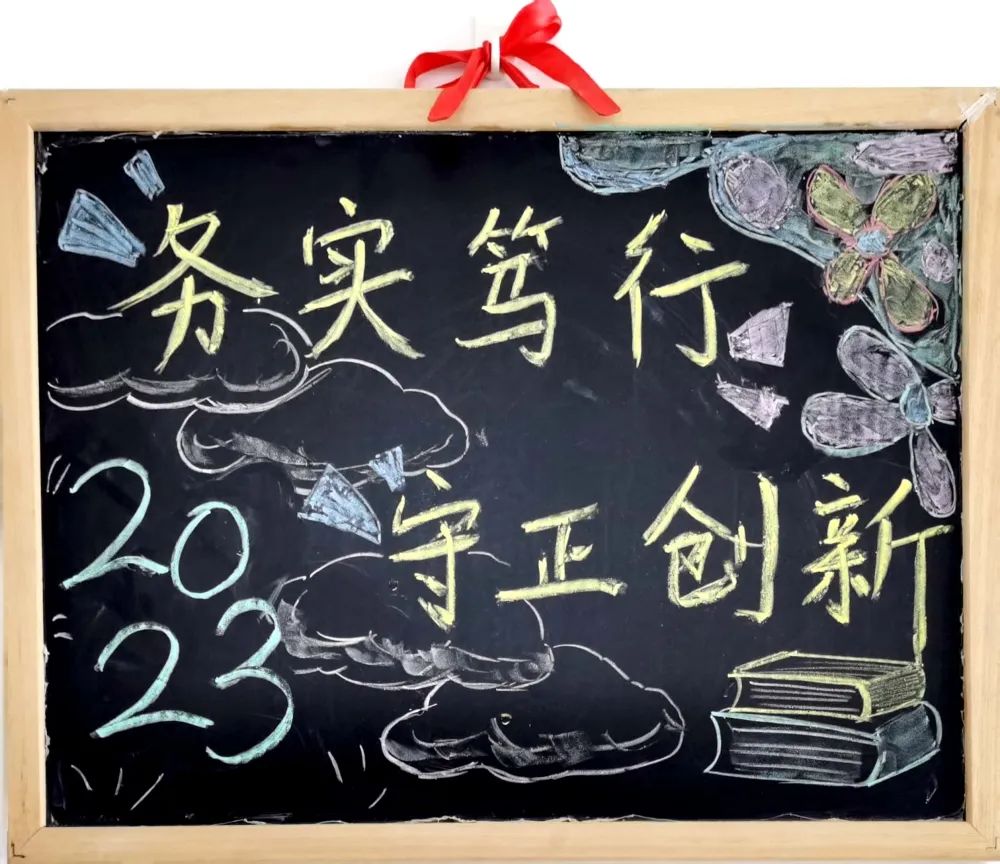 务实笃行
守正创新
20
23